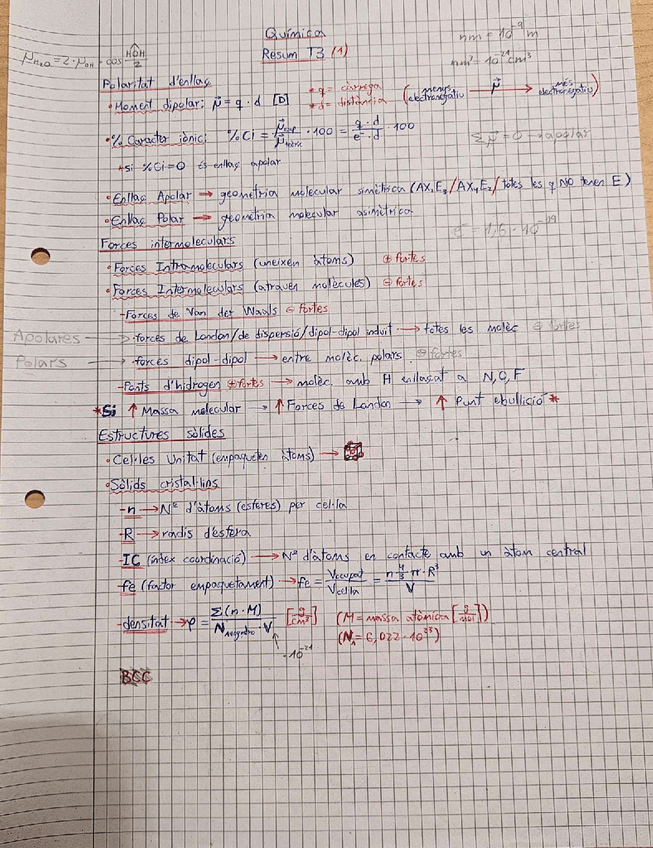 Química
nm = 10⁻⁹ m
μH₂O = 2·μOH · cos HÔH/2
Resum T3 (1)
nm³ 10⁻²¹ cm³
Polaritat d'enllaç
• Moment dipolar: μ⃗ = q · d [D]
* q = càrrega
* d = distància
(menys electronegatiu μ⃗ → més electronegatiu)
• % Caràcter iònic: %Ci = μ⃗exp/μ⃗teòric · 100 = q · d/e⁻ · d · 100
Σμ⃗ = 0 → apolar
* si %Ci = 0 és enllaç apolar
• Enllaç Apolar → geometria molecular simètrica (AX₂E₃/AX₄E₂/totes les q NO tenen E)
• Enllaç Polar → geometria molecular asimètrica
e⁻ = 1,6 · 10⁻¹⁹
Forces intermoleculars
• Forces Intramoleculars (uneixen àtoms) ⊕ fortes
• Forces Intermoleculars (atrauen molècules) ⊖ fortes
- Forces de Van der Waals ⊖ fortes
Apolares → · forces de London/de dispersió/dipol-dipol induït → totes les molèc ⊖ fortes
Polars → · forces dipol-dipol → entre molèc. polars ⊕ fortes
- Ponts d'hidrogen ⊕ fortes → molèc. amb H enllaçat a N, O, F
* Si ↑ Massa molecular → ↑ Forces de London → ↑ Punt ebullició *
Estructures sòlides
• Cel·les Unitat (empaqueten àtoms) →
• Sòlids cristal·lins
- n → Nº d'àtoms (esferes) per cel·la
- R → radis d'esfera
- IC (índex coordinació) → Nº d'àtoms en contacte amb un àtom central
- fe (factor empaquetament) → fe = Vocupat/Vcel·la = n 4/3 π · R³/V
- densitat → ρ = Σ(n · M)/Navogadro · V [g/cm³] (M = massa atòmica [g/mol])
(Nₐ = 6,022 · 10²³)
· 10⁻²¹
BCC